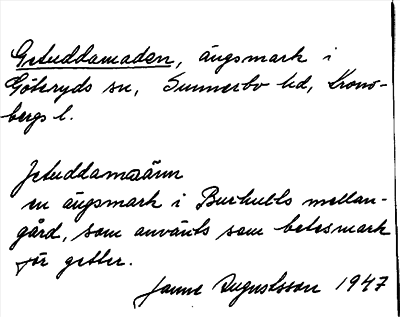 Getuddamaden, ängsmark i
Göteryds sn, Sunnerbo hd, Krono-
bergs l.
en ängsmark i Burhults mellan-
gård, som använts som betesmark
för getter.
Janne Augustsson 1947